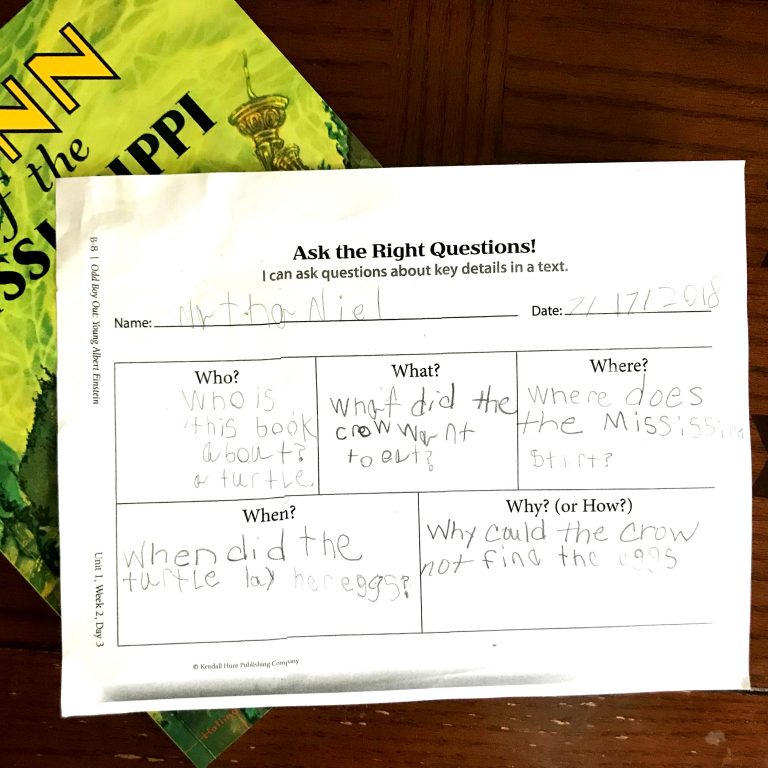 NN
of the
SSISSIPPI
Ask the Right Questions!
I can ask questions about key details in a text.
Name: NathaNiel
Date: 2/17/2018
Who?
Who is
this book
about?
a turtle
What?
What did the
crow want
to eat?
Where?
Where does
the Mississippi
Start?
When?
When did the
turtle lay her eggs?
Why? (or How?)
Why could the crow
not find the eggs
© Kendall Hunt Publishing Company
B-8 | Odd Boy Out: Young Albert Einstein
Unit 1, Week 2, Day 3
Holling